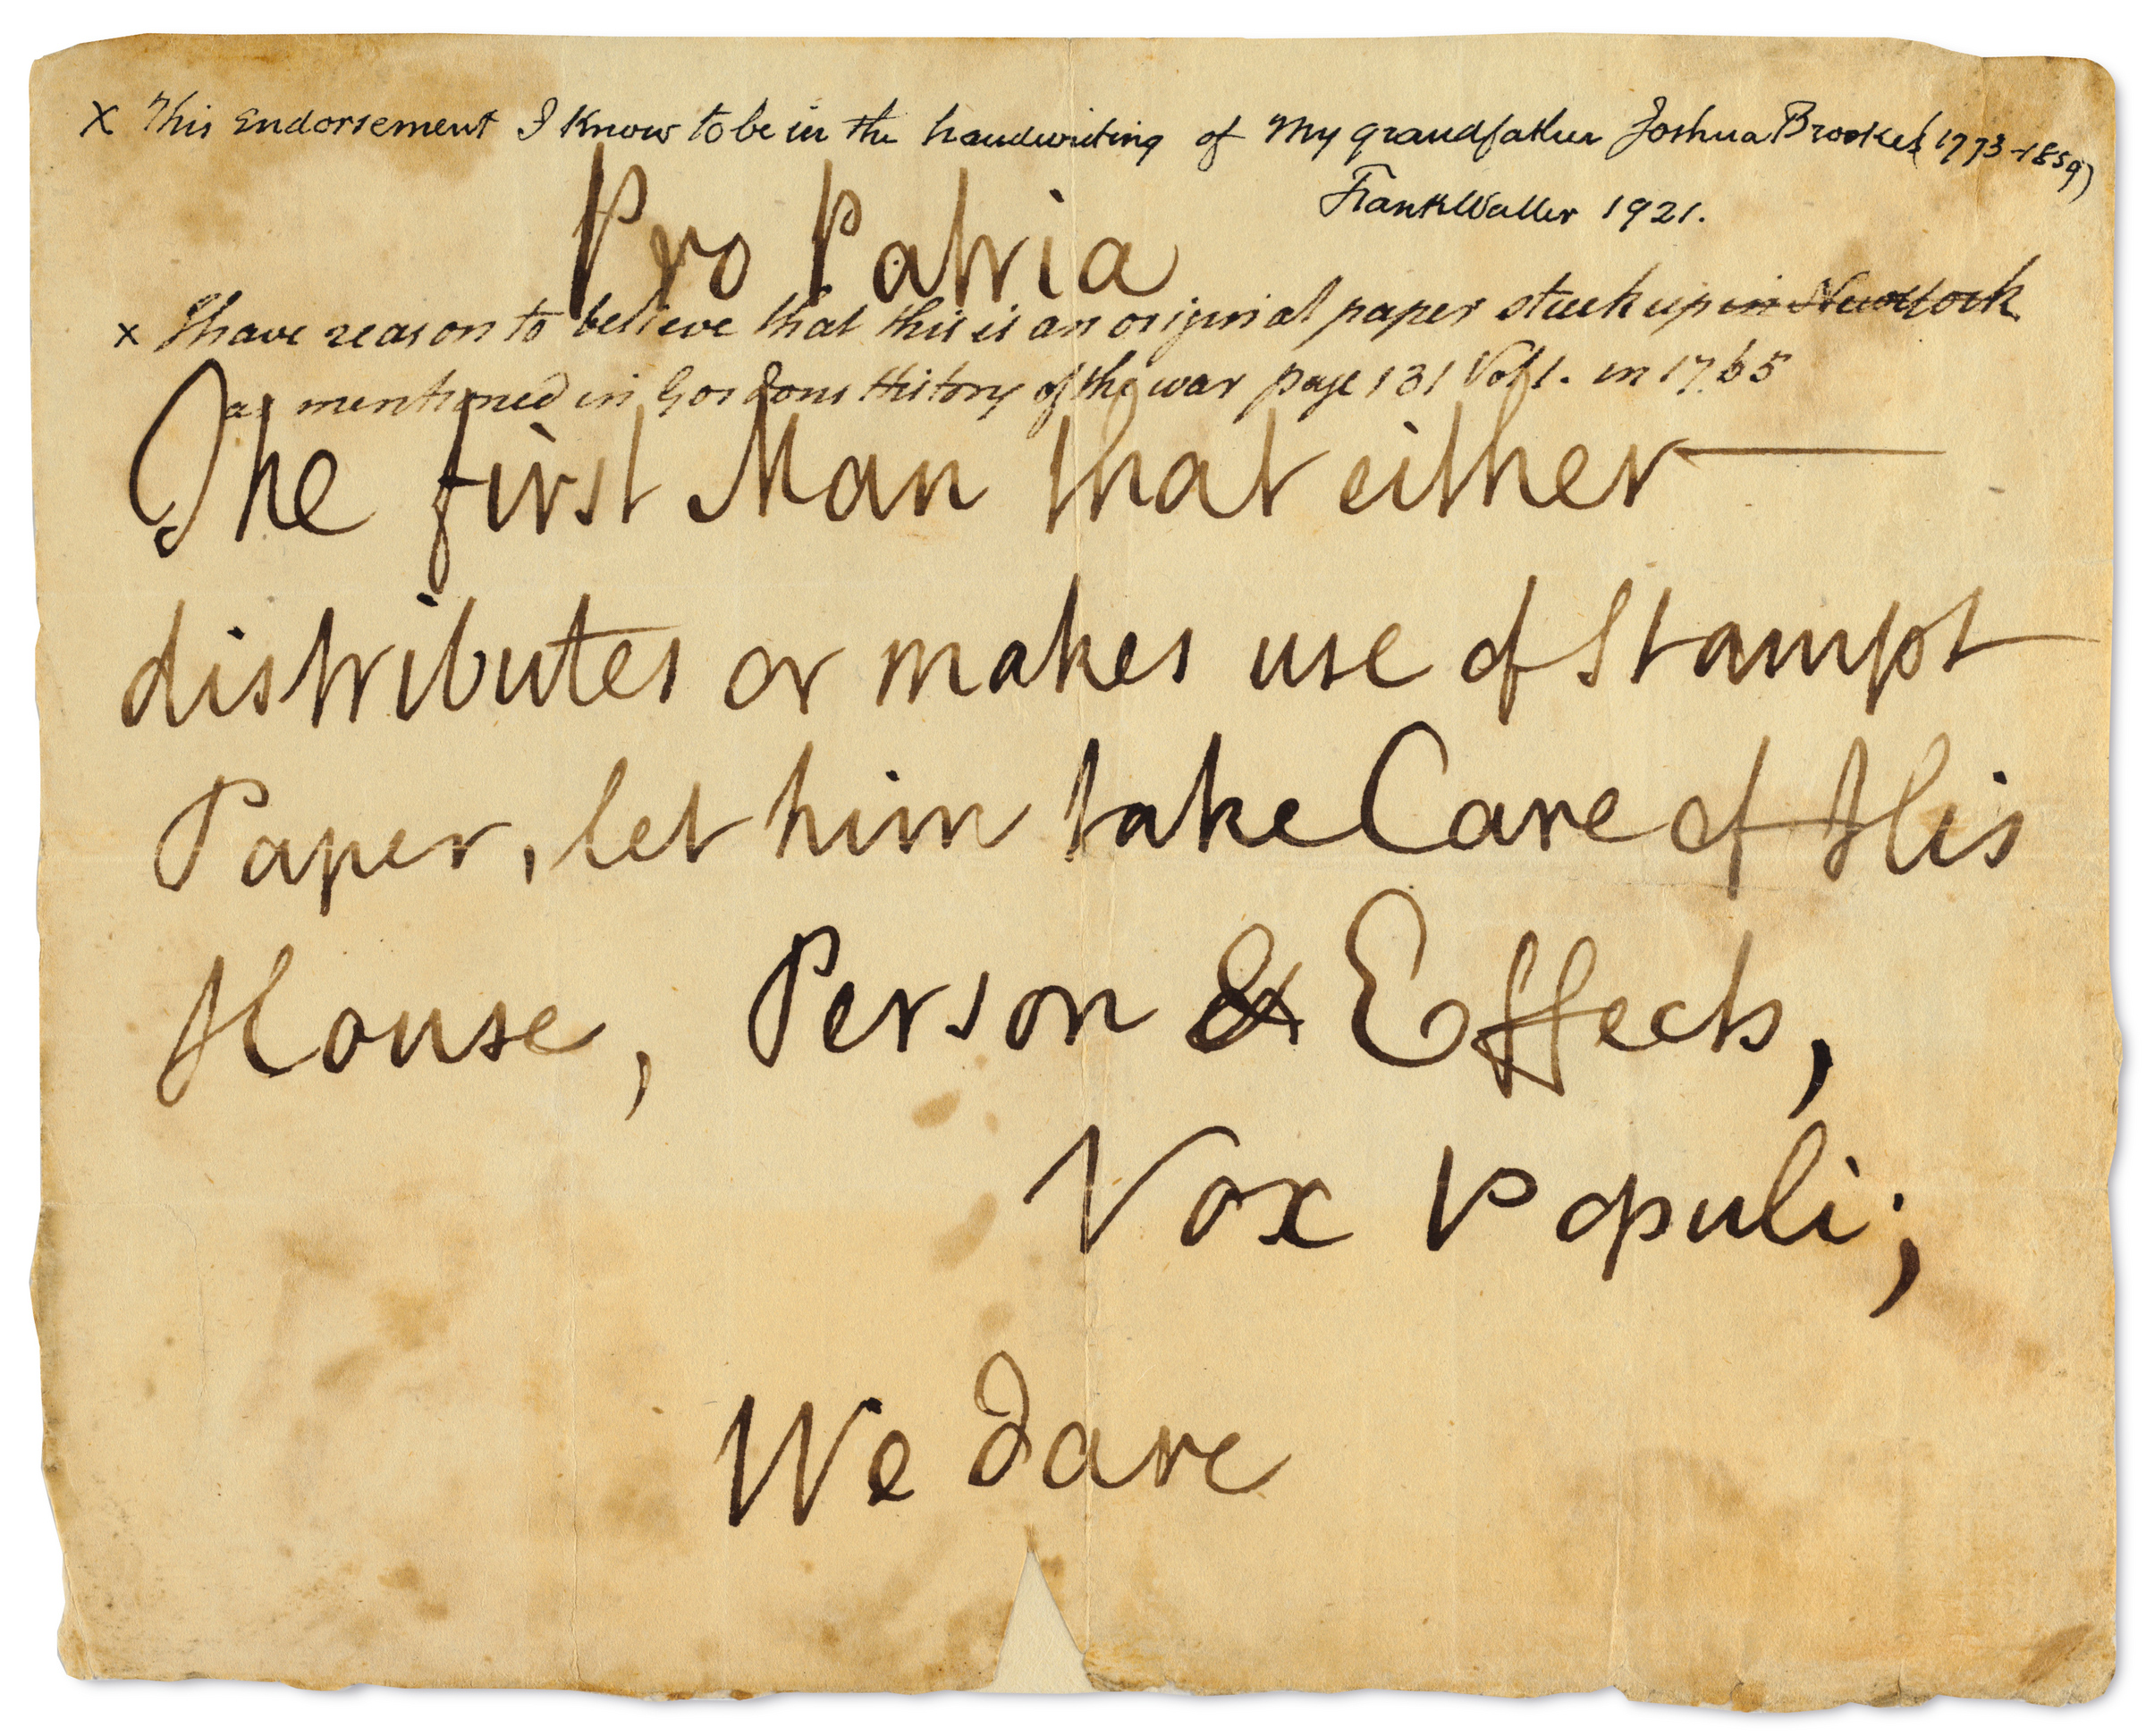 x This Endorsement I Know to be in the handwriting of My grandfather Joshua Brookes (1773-1859)
Frank Waller 1921.
Pro Patria
x I have reason to believe that this is an original paper stuck up in New York
as mentioned in Gordons History of the war page 131 Vol 1. in 1765
The first Man that either
distributes or makes use of Stampt
Paper, let him take Care of His
House, Person & Effects,
Vox Populi;
We dare